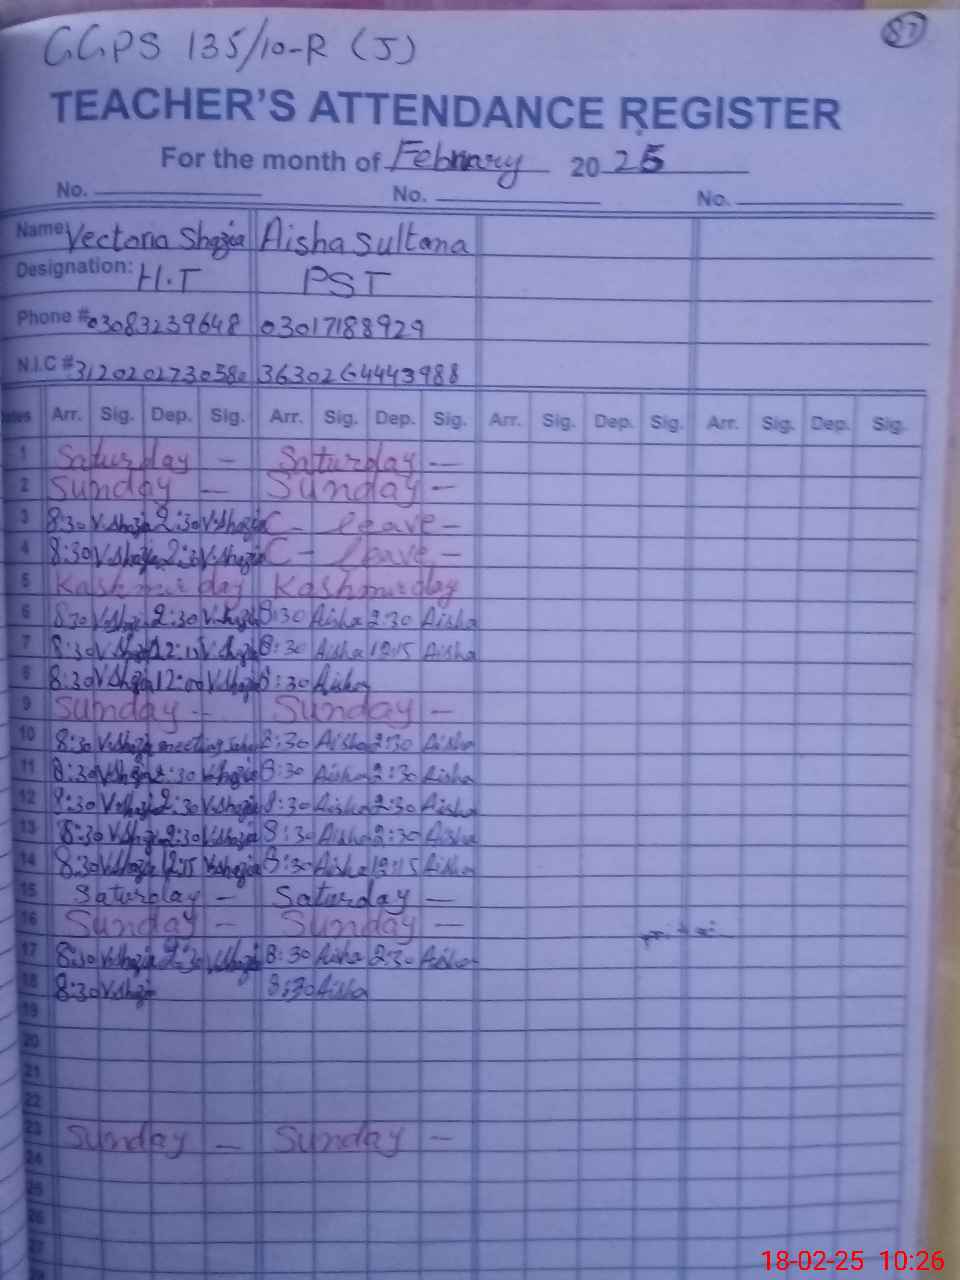 87
GGPS 135/10-R (J)
TEACHER'S ATTENDANCE REGISTER
For the month of February 2025
No. No. No.
Name Vectoria Shazia Aisha Sultana
Designation: H.T PST
Phone # 03083239648 03017188929
N.I.C # 3120202730580 3630264443988
Arr. Sig. Dep. Sig. Arr. Sig. Dep. Sig. Arr. Sig. Dep. Sig. Arr. Sig. Dep. Sig.
1 Saturday - Saturday -
2 Sunday - Sunday -
3 8:30 V.Shazia 2:30 V.Shazia C - leave -
4 8:30 V.Shazia 2:30 V.Shazia C - leave -
5 Kashmir day Kashmir day
6 8:30 V.Shazia 2:30 V.Shazia 8:30 Aisha 2:30 Aisha
7 8:30 V.Shazia 12:15 V.Shazia 8:30 Aisha 12:15 Aisha
8 8:30 V.Shazia 12:00 V.Shazia 8:30 Aisha
9 Sunday - Sunday -
10 8:30 V.Shazia meeting 8:30 Aisha 2:30 Aisha
11 8:30 V.Shazia 2:30 V.Shazia 8:30 Aisha 2:30 Aisha
12 8:30 V.Shazia 2:30 V.Shazia 8:30 Aisha 2:30 Aisha
13 8:30 V.Shazia 2:30 V.Shazia 8:30 Aisha 2:30 Aisha
14 8:30 V.Shazia 12:15 V.Shazia 8:30 Aisha 12:15 Aisha
15 Saturday - Saturday -
16 Sunday - Sunday -
17 8:30 V.Shazia 2:30 V.Shazia 8:30 Aisha 2:30 Aisha
18 8:30 V.Shazia 8:30 Aisha
19
20
21
22
23 Sunday - Sunday -
24
25
26
27
18-02-25 10:26